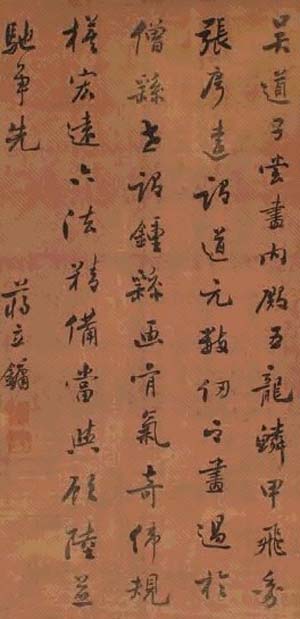 吳道子嘗畫內殿五龍鱗甲飛動
張彥遠謂道元數仞之畫過於
僧繇謂鍾繇画有氣奇偉規
模宏遠六法精備當與顧陸並
馳爭先
蔣立鏞